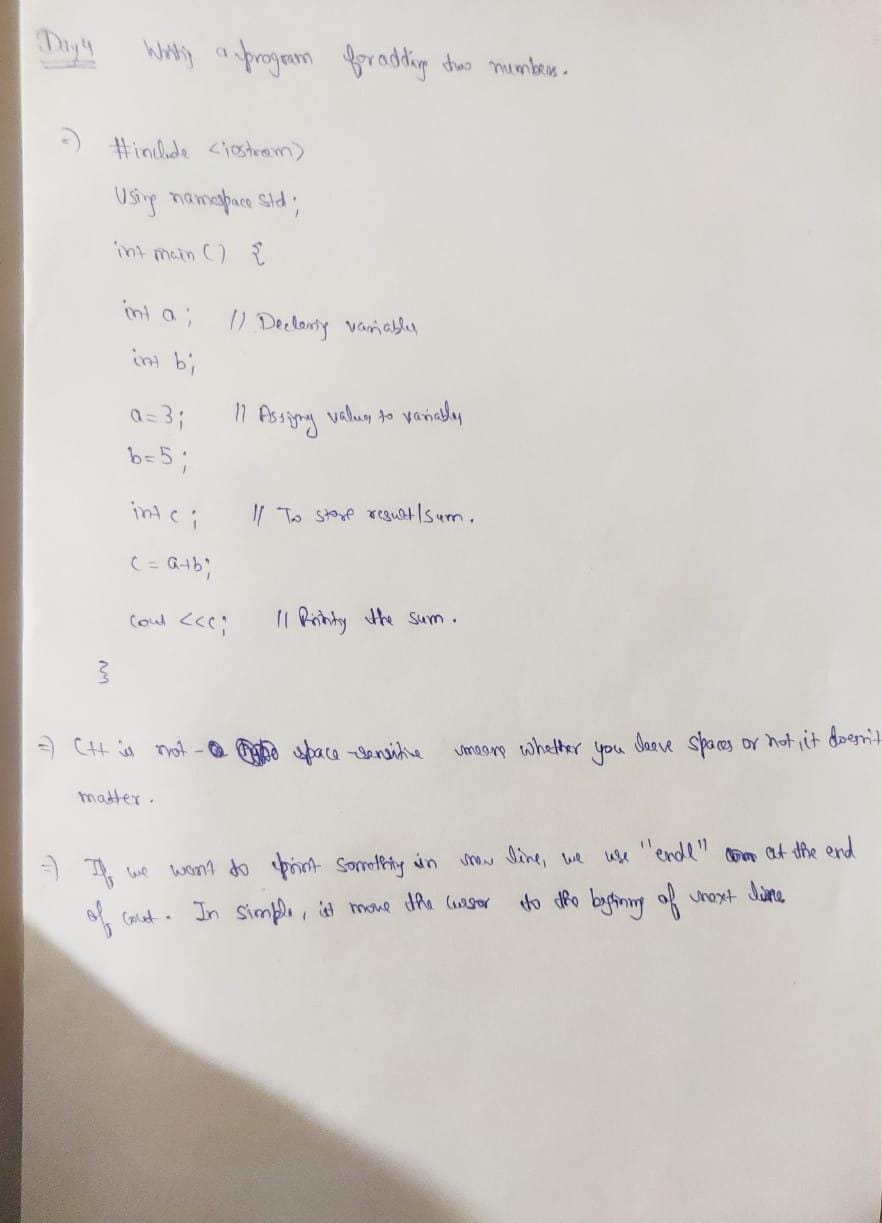 Day 4 Writing a program for adding two numbers.
=) #include <iostream>
Using namespace std;
int main() {
int a; // Declaring variables
int b;
a=3; // Assigning values to variables
b=5;
int c; // To store result/sum.
c = a+b;
cout <<c; // Printing the sum.
}
=) C++ is not - space-sensitive means whether you leave spaces or not, it doesn't
matter.
=) If we want to print something in new line, we use "endl" at the end
of cout. In simple, it move the cursor to the beginning of next line.